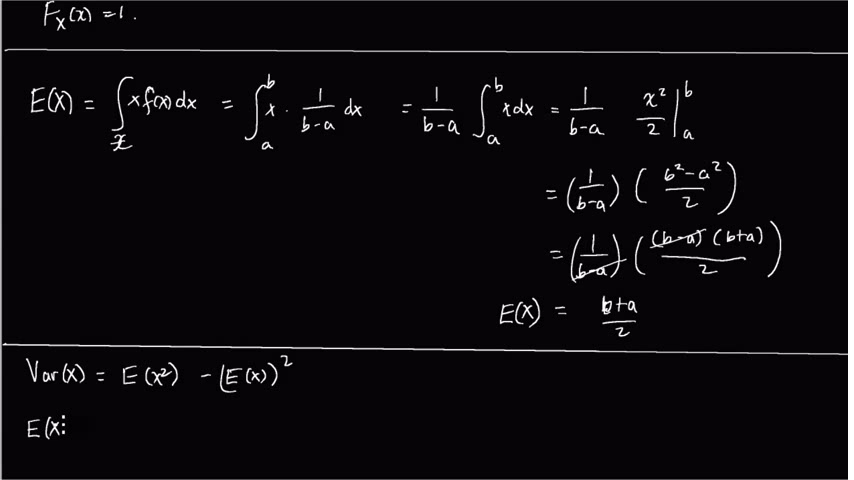 F_X(x) = 1.
E(X) = ∫_𝒳 x f(x) dx = ∫_a^b x · 1/(b-a) dx = 1/(b-a) ∫_a^b x dx = 1/(b-a) x²/2 |_a^b
= (1/(b-a)) ((b² - a²)/2)
= (1/(b-a)) ((b-a)(b+a)/2)
E(X) = (b+a)/2
Var(X) = E(X²) - (E(X))²
E(X